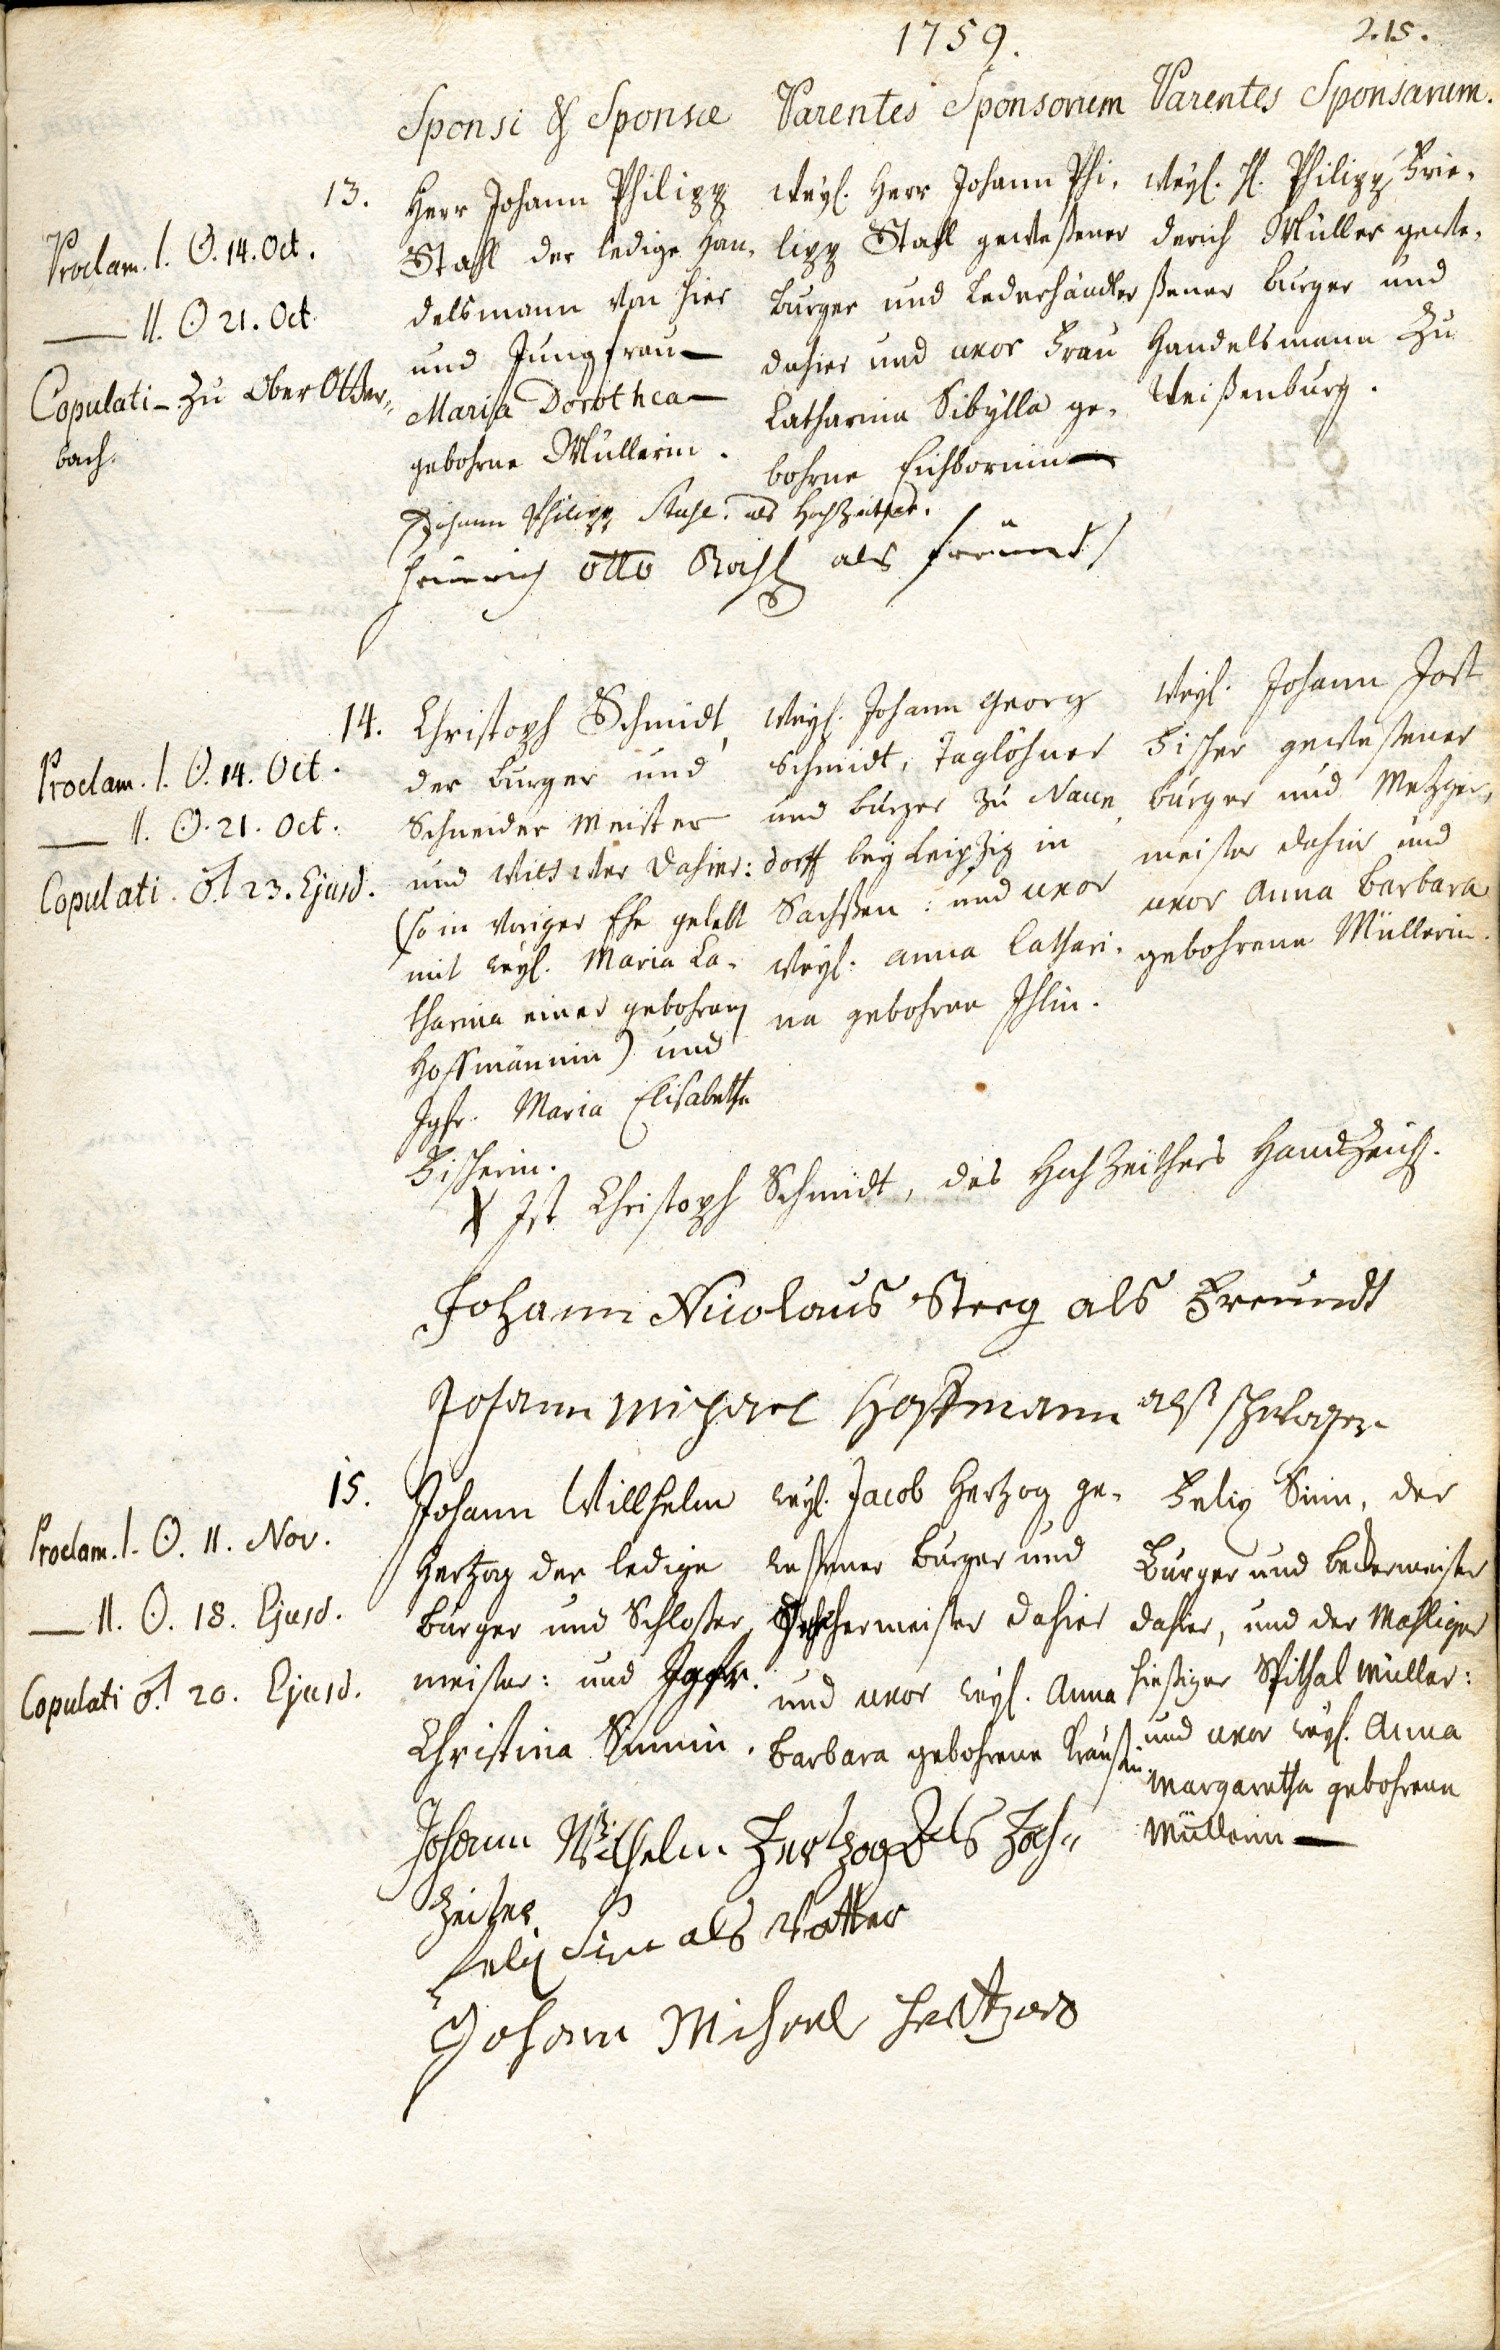 1759.
215.
Sponsi & Sponsæ
Parentes Sponsorum
Parentes Sponsarum.
13.
Proclam. I. ☉. 14. Oct.
— II. ☉ 21. Oct.
Copulati - zu Ober Otter,,
bach.
Herr Johann Philipp
Stahl der ledige Han-
delsmann von hier
und Jungfrau —
Maria Dorothea —
gebohrne Müllerin.
weyl. Herr Johann Phi-
lipp Stahl gewesßener
burger und Lederhändler
dahier und uxor Frau
Catharina Sibÿlla ge-
bohrne Eichbornin —
weyl. H. Philipp Frie-
derich Müller gewe-
ßener burger und
Handelsmann zu
Weißenburg.
Johann Philipp Stahl. als Hochzeiter.
Heinrich Otto Stahl als freund
14.
Proclam. I. ☉. 14. Oct.
— II. ☉. 21. Oct.
Copulati ♂ 23. Ejusd.
Christoph Schmidt,
der burger und
Schneider Meister
und Wittwer dahier:
(so in voriger Ehe gelebt
mit weyl. Maria Ca-
tharina einer gebohrnen
Hoffmännin) und
Jgfr. Maria Elisabetha
Fischerin.
weyl. Johann Georg
Schmidt, Taglöhner
und burger zu Naun-
dorff bey Leipzig in
Sachßen: und uxor
weyl. Anna Cathari-
na gebohrne Ihlin.
weyl. Johann Jost
Fischer gewesßener
burger und Metzger,
meister dahier und
uxor Anna barbara
gebohrene Müllerin.
X Ist Christoph Schmidt, des Hochzeithers Handzeich.
Johann Nicolaus Steeg als Freundt
Johann Michael Hoffmann alß schwager
15.
Proclam. I. ☉. 11. Nov.
— II. ☉. 18. Ejusd.
Copulati ♂ 20. Ejusd.
Johann Willhelm
Hertzog der ledige
burger und Schlosser,
meister: und Jgfr.
Christina Sinnin.
weyl. Jacob Hertzog ge-
weßener burger und
meister dahier
und uxor weyl. Anna
barbara gebohrene Craußin
Felix Sinn, der
Burger und beckermeister
dahier, und der Mahlige
hießiger Spithal Müller:
und uxor weyl. Anna
Margaretha gebohrene
Müllerin —
Johann Wilhelm Hertzog Als Hoch,,
Zeiter
Felix Sinn als Vatter
Johann Michael Hertzog